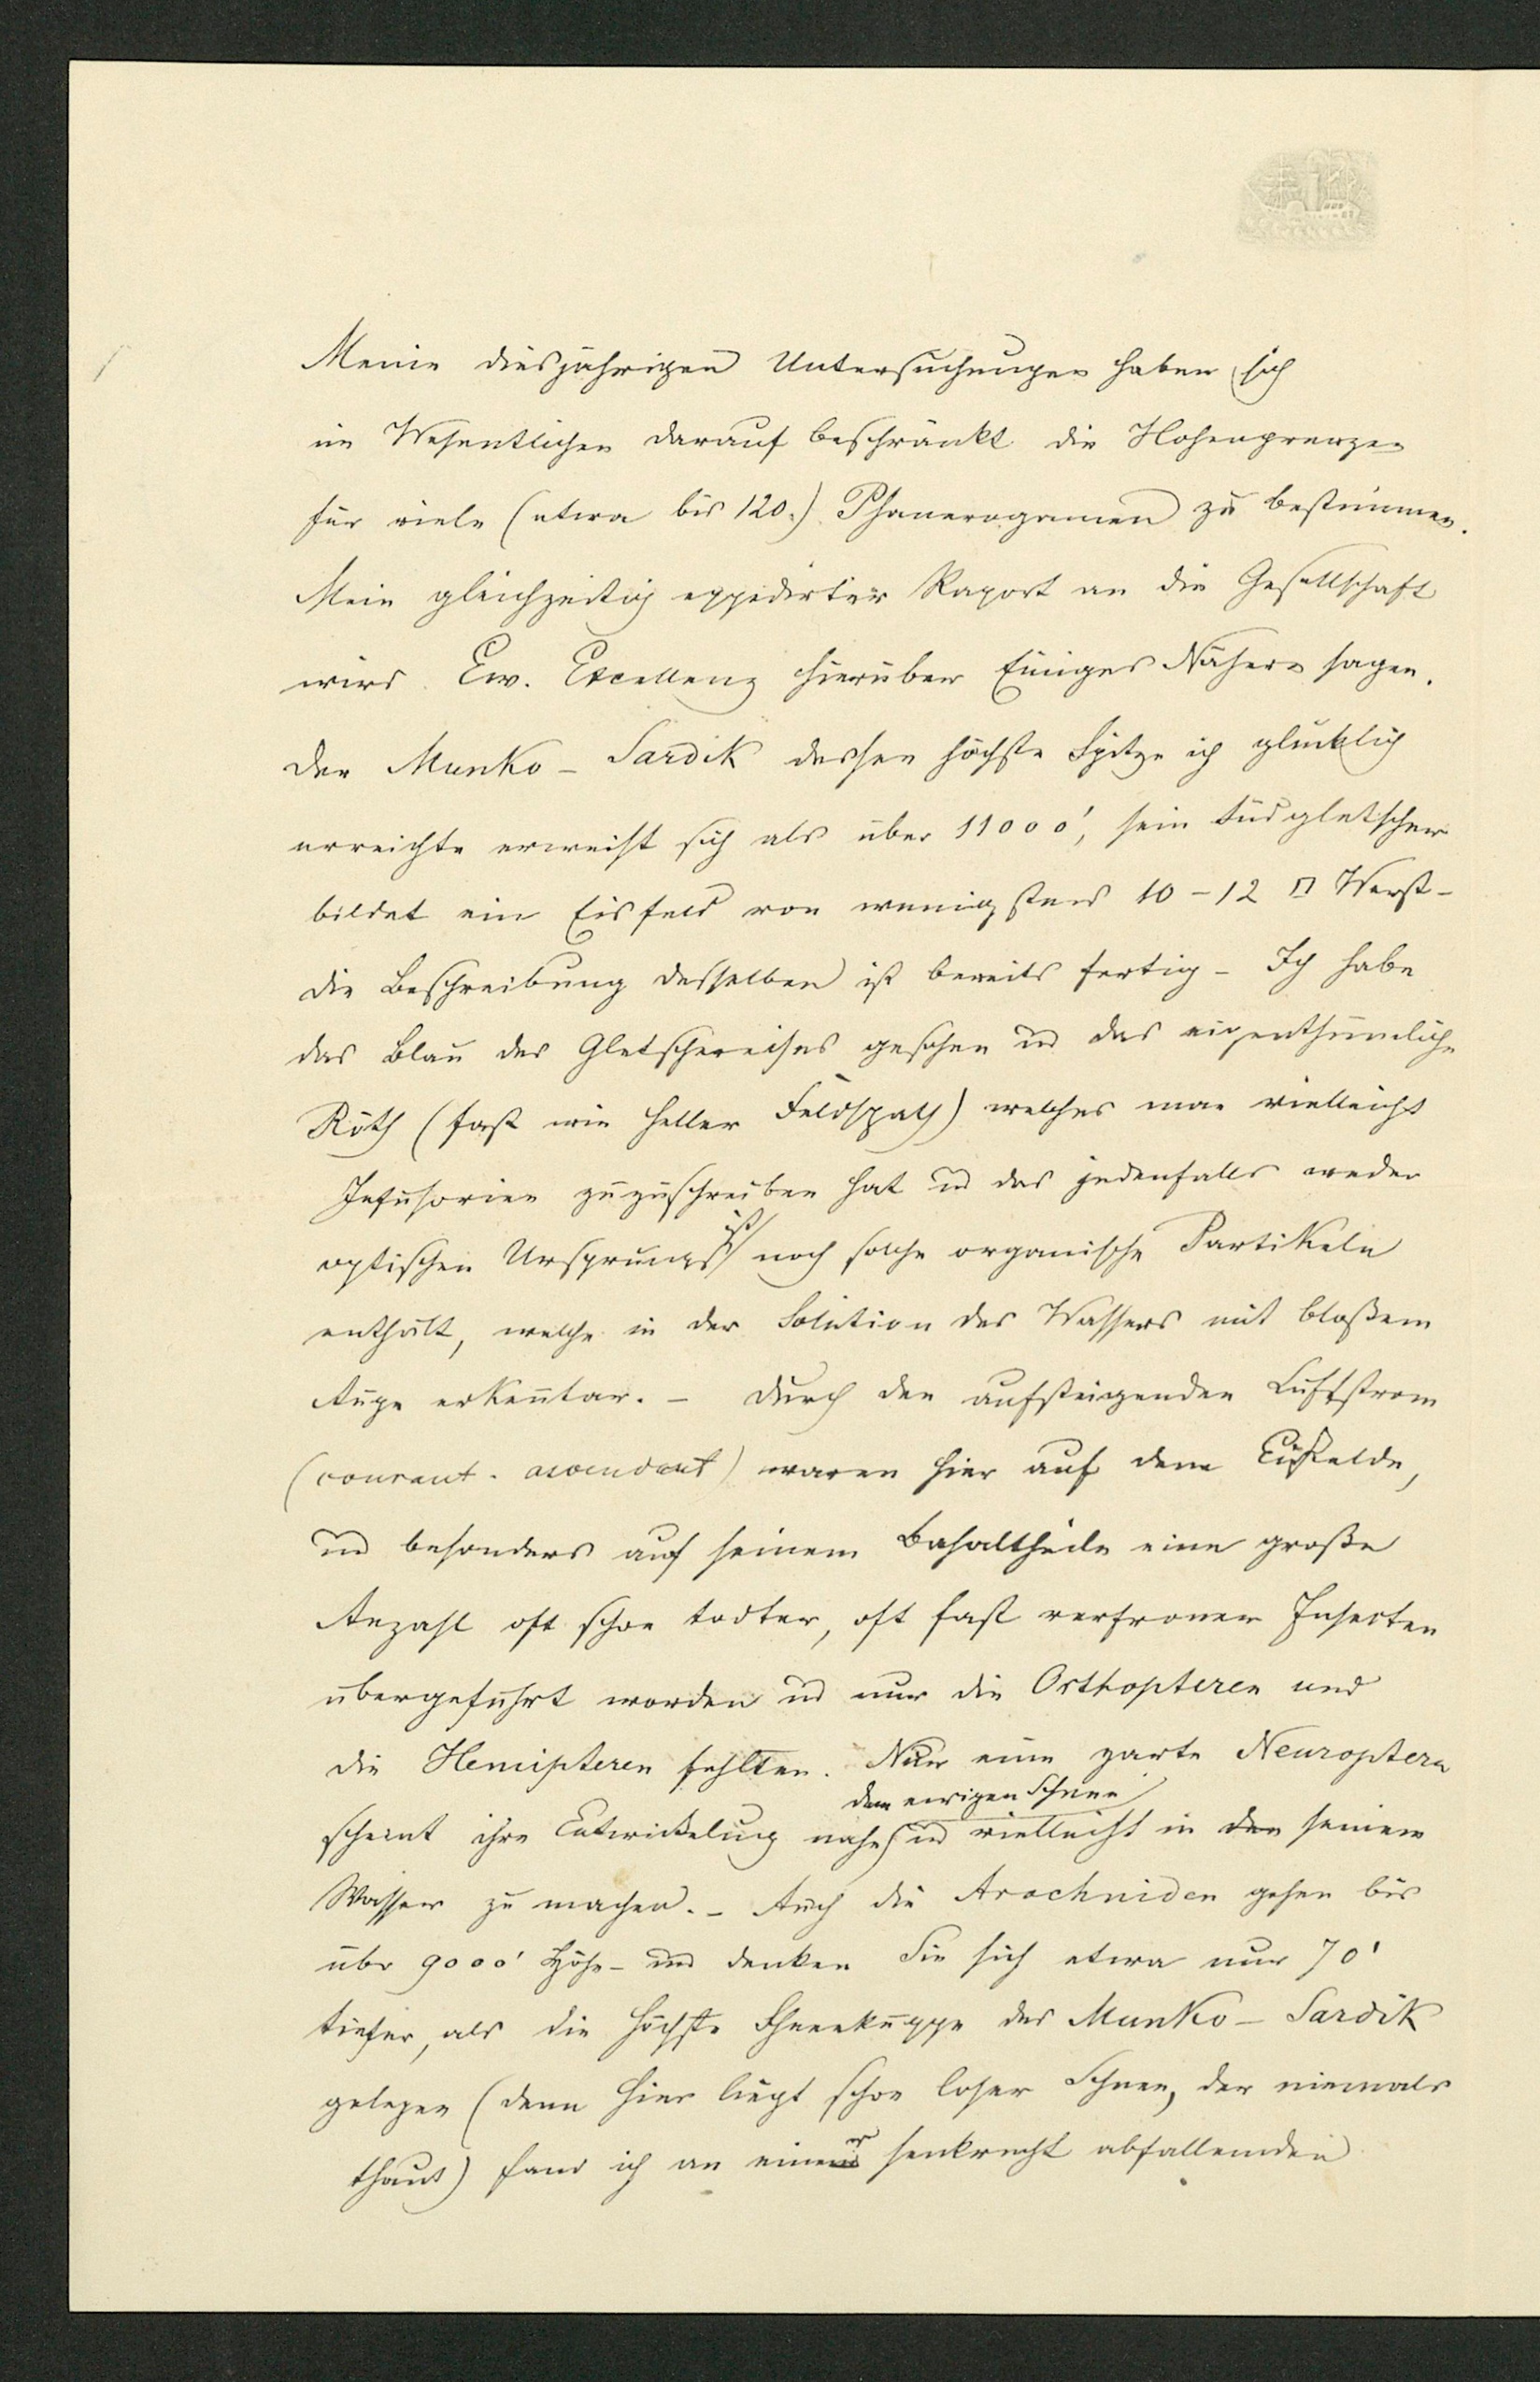 Meine diesjährigen Untersuchungen haben sich
im Wesentlichen darauf beschränkt die Höhengrenzen
für viele (etwa bis 120.) Phanerogamen zu bestimmen.
Mein gleichzeitig expedirter Raport an die Gesellschaft
wird Ew. Excellenz hierüber Einiges Nähere sagen.
Der Munko-Sardik dessen höchste Spitze ich glücklich
erreichte erweist sich als über 11000', sein Südgletscher
bildet ein Eisfeld von wenigstens 10-12 □ Werst-
die Beschreibung desselben ist bereits fertig - Ich habe
das Blau des Gletschereises gesehen und das eigenthümliche
Roth (fast wie heller Feldspath) welches man vielleicht
Infusorien zuzuschreiben hat und das jedenfalls weder
optischen Ursprungs ist noch solche organische Partikeln
enthält, welche in der Solution des Wassers mit bloßem
Auge erkenntar. - Durch den aufsteigenden Luftstrom
(courant. ascendant) waren hier auf dem Eisfelde,
und besonders auf seinem Basaltheile eine große
Anzahl oft schon todter, oft fast verfrorner Insecten
übergeführt worden und nur die Orthopteren und
die Hemipteren fehlten. Nur eine zarte Neuroptera
scheint ihre Entwickelung nahe dem ewigen Schnee und vielleicht in den seinem
Wasser zu machen. - Auch die Arachniden gehen bis
über 9000' Höhe - und denken Sie sich etwa nur 70'
tiefer, als die höchste Schneekuppe des Munko-Sardik
gelegen (denn hier liegt schon loser Schnee, der niemals
thaut) fand ich an einer senkrecht abfallenden